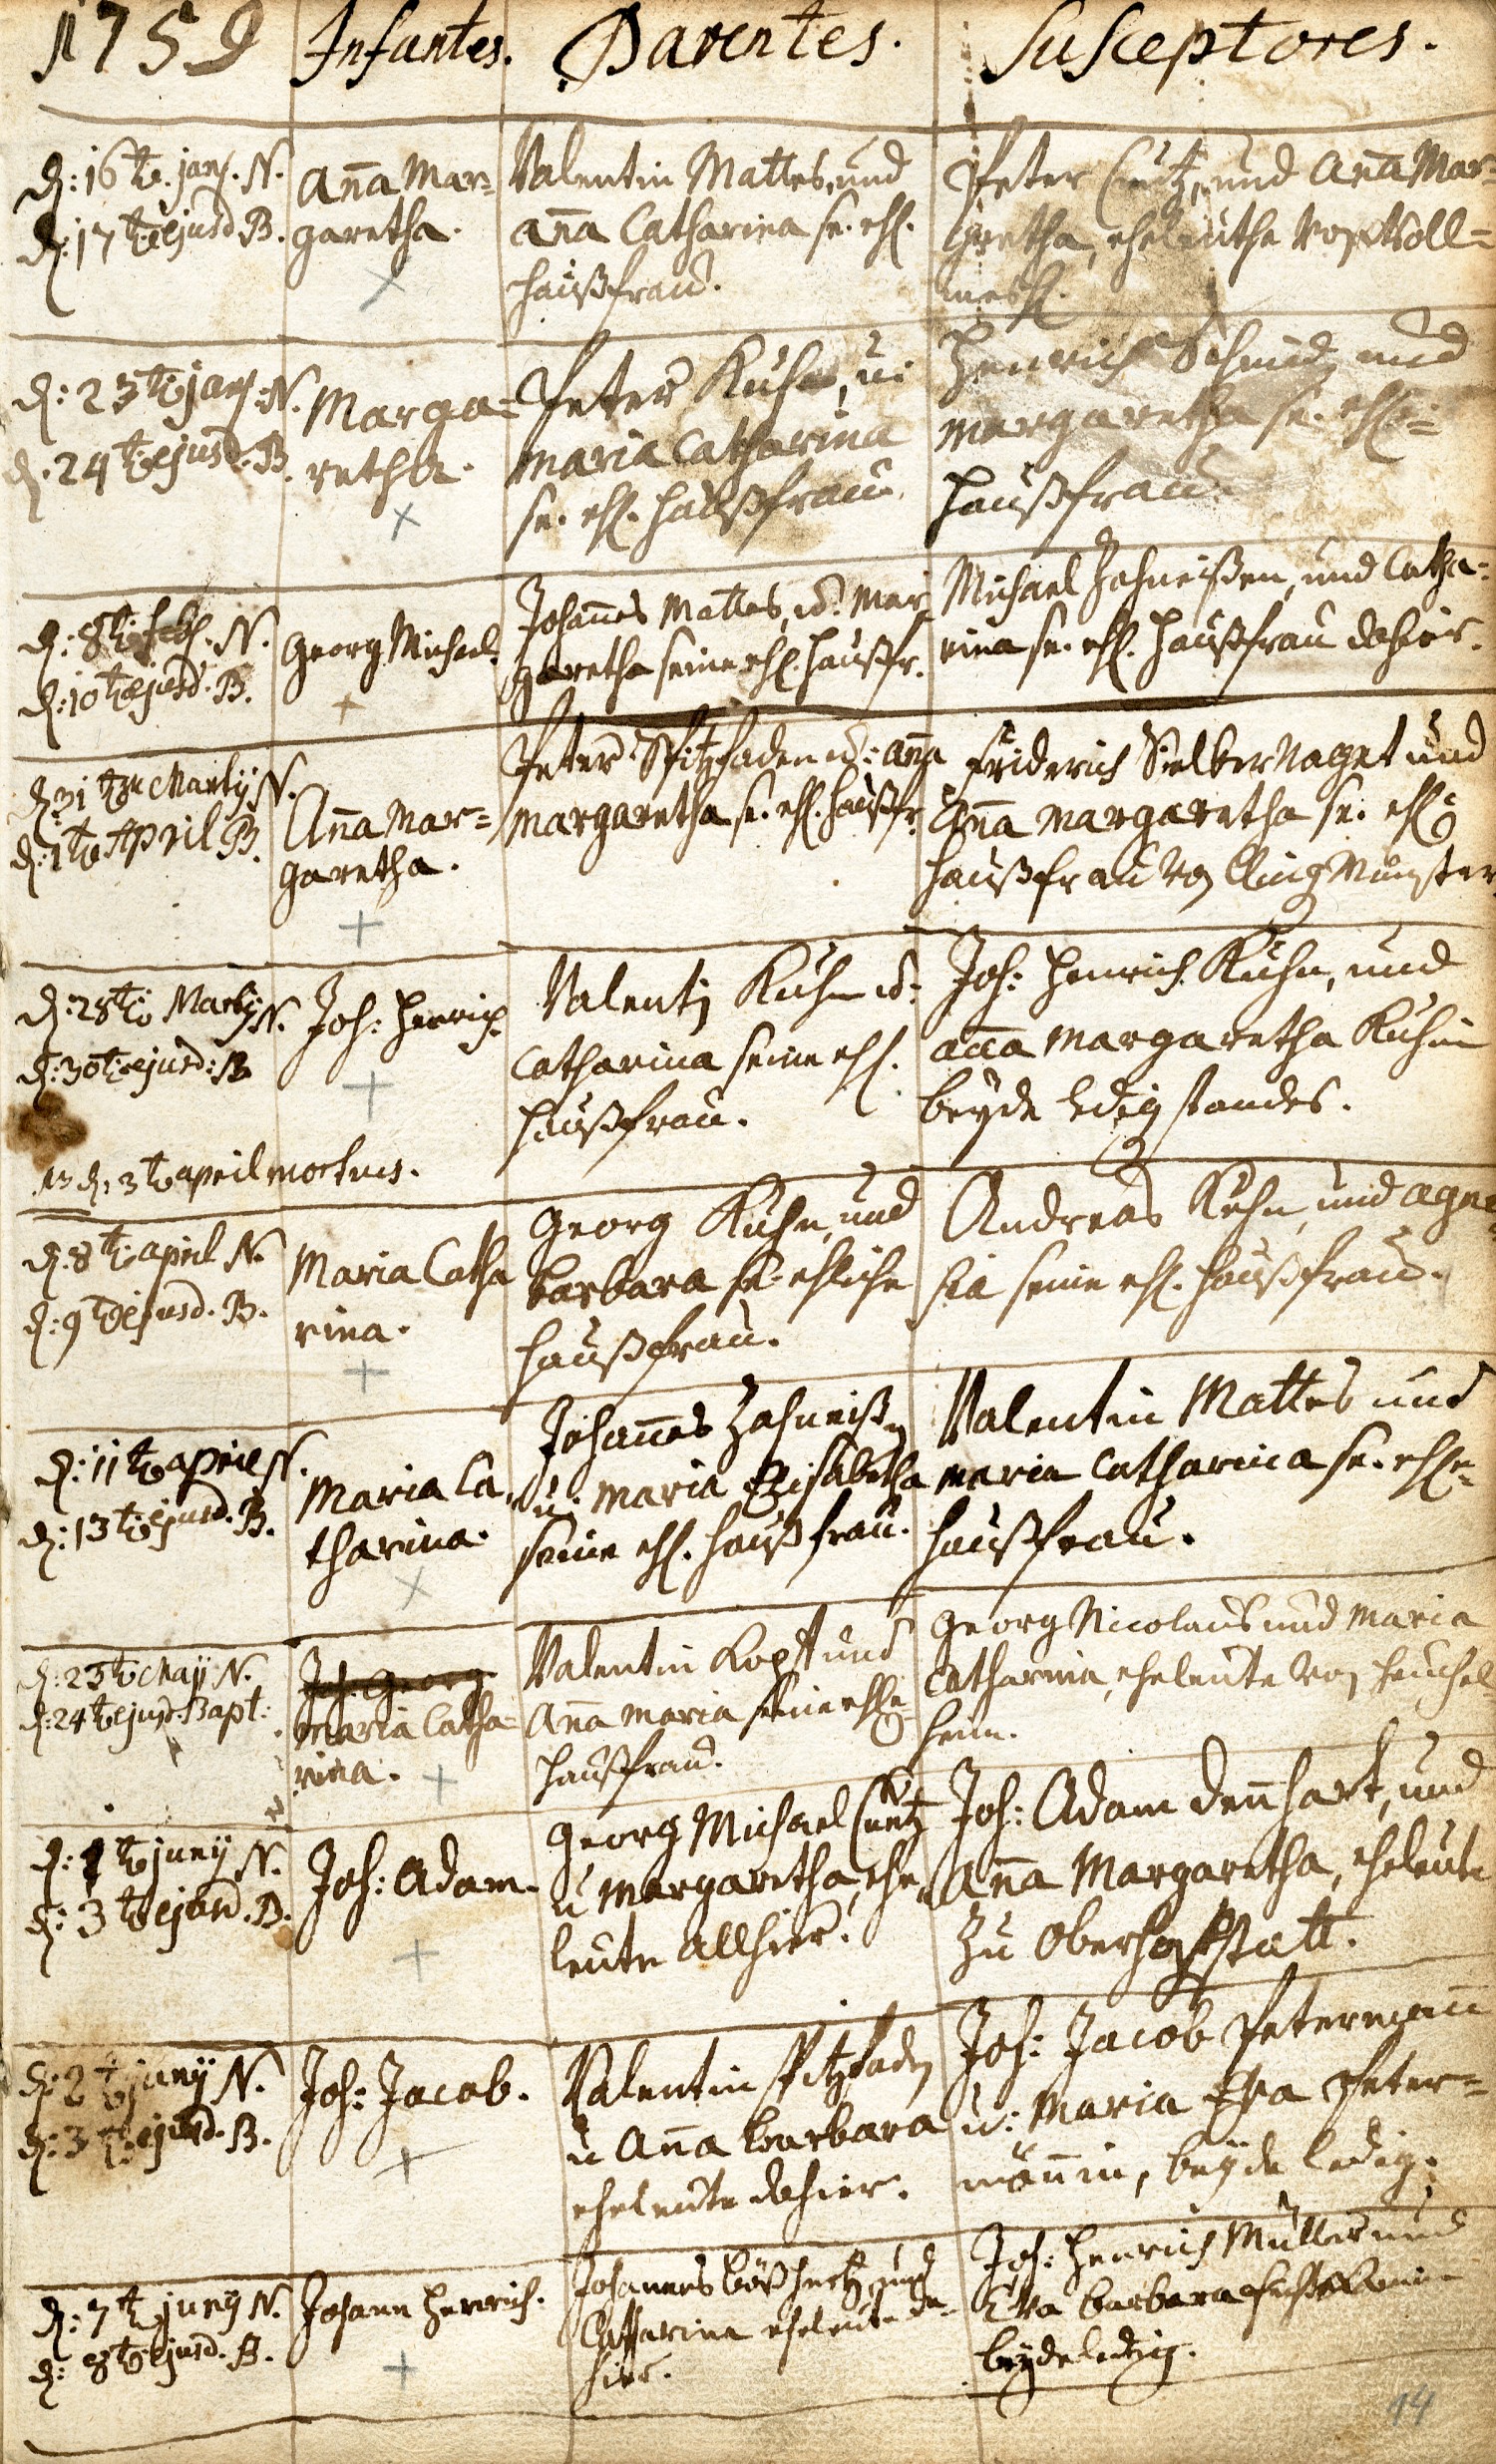 1759 Infantes. Parentes. Susceptores.
d: 16te. jan. N.
d: 17te ejusd. B.
Anna Mar=
garetha.
Valentin Mattes, und
Anna Catharina se. ehl.
haußfrau.
Peter Cuntz, und Anna Mar=
gretha, eheleuthe von
d: 23te jan. N.
d. 24te ejusd. B.
Marga=
retha.
Peter Kuhn, u:
Maria Catharina
se. ehl. haußfrau.
Henrich Schmid, und
Margaretha se. ehl.
haußfrau.
d: 8te feb. N.
d: 10te ejusd. B.
Georg Michael.
Johannes Mattes, u: Mar
garetha seine ehl. haußfr.
Michael Zahneißen, und Catha=
rina se. ehl. haußfrau dahier.
d. 31te Martij N.
d: 1te April B.
Anna Mar=
garetha.
Peter Spitzfaden u: Anna
Margaretha se. ehl. haußfr.
Friderich Silbernagel und
Anna Margaretha se. ehl.
haußfrau von Clingmünster
d: 28te Martij N.
d: 30te ejusd: B.
Joh: Henrich.
Valentin Kuhn u:
Catharina seine ehl.
haußfrau.
Joh: Henrich Kuhn, und
Anna Margaretha Kuhnin
beyde ledig standes.
NB d. 3te april mortuus.
d: 8te april N.
d: 9te ejusd. B.
Maria Catha
rina.
Georg Kuhn, und
Barbara se. ehliche
haußfrau.
Andreas Kuhn, und Agne
sia seine ehl. haußfrau.
d: 11te april N.
d: 13te ejusd. B.
Maria Ca=
tharina.
Johannes Zahneißen
u: Maria Elisabetha
seine ehl. haußfrau.
Valentin Mattes und
Maria Catharina se. ehle.
haußfrau.
d: 23te Maij N.
d: 24te ejusd. Bapt:
Joh. Georg
Maria Catha=
rina.
Valentin Kopf und
Anna Maria seine ehle
haußfrau.
Georg Nicolaus und Maria
Catharina, eheleute von Heuchel
heim.
d: 1te junij N.
d: 3te ejusd. B.
Joh: Adam.
Georg Michael Cuntz
u Margaretha, ehe=
leute allhier.
Joh: Adam Dennhart, und
Anna Margaretha, eheleute
zu Oberhochstatt.
d: 2te junij N.
d: 3te ejusd. B.
Joh: Jacob.
Valentin Spitzfaden
u Anna Barbara
eheleute dahier.
Joh: Jacob Petermann
u: Maria Eva Peter=
männin, beyde ledig.
d: 7te junij N.
d: 8te ejusd. B.
Johann Henrich.
Johannes und
Catharina eheleute da=
hier.
Joh: Henrich Müller und
Eva Barbara
beyde ledig.
14